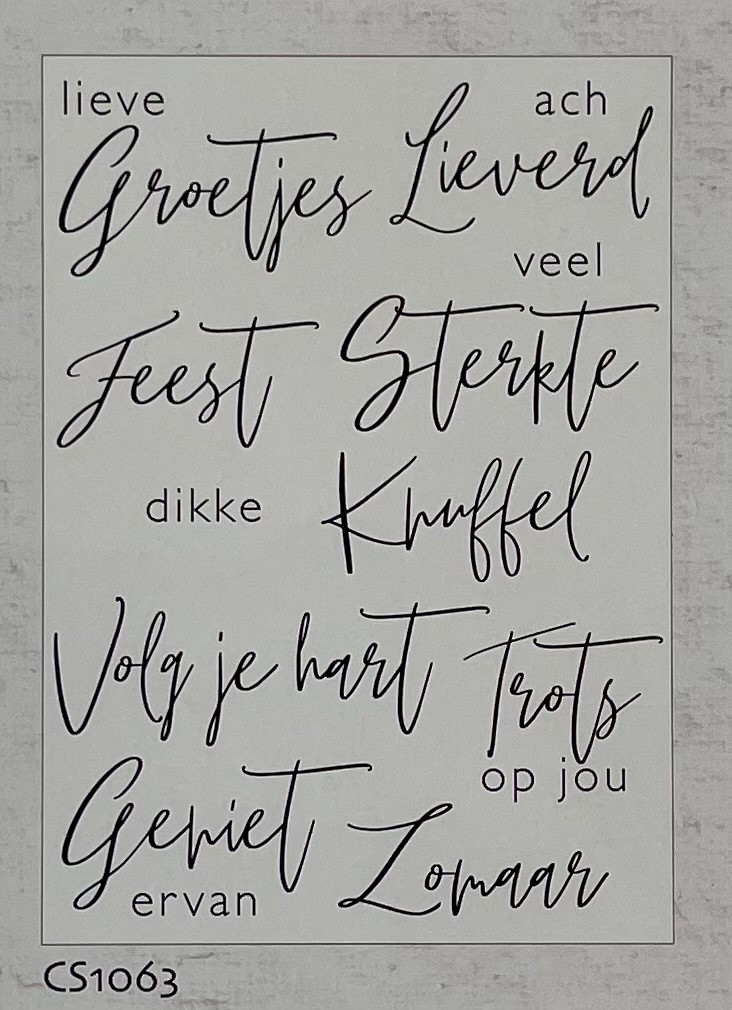 lieve
Groetjes
ach
Lieverd
veel
Feest
Sterkte
dikke
Knuffel
Volg je hart
Trots
op jou
Geniet
ervan
Zomaar
CS1063